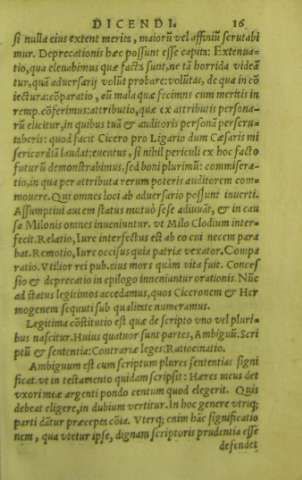 DICENDI. 16
si nulla eius extent merita, maiorũ vel affiniũ scrutabi
mur. Deprecationis hæc possunt esse capita: Extenua-
tio, qua eleuabimus quæ facta sunt, ne tã horrida videã
tur, quã aduersarij volũt probare: volũtas, de qua in cõ
iectura: cõparatio, cũ mala quæ fecimus cum meritis in
remp. cõferimus: attributio, quæ ex attributis persona-
rũ elicitur, in quibus tuã & auditoris personã perscru-
taberis: quod facit Cicero pro Ligario dum Cæsaris mi
sericordiã laudat: euentus, si nihil periculi ex hoc facto
futurũ demonstrabimus, sed boni plurimũ: commisera-
tio, in qua per attributa rerum poteris auditorem com-
mouere. Qui omnes loci ab aduersario possunt inuerti.
Assumptiui autem status mutuò sese adiuuãt, & in cau
sa Milonis omnes inueniuntur. vt Milo Clodium inter-
fecit. Relatio, Iure interfectus est ab eo cui necem para
bat. Remotio, Iure occisus quia patriæ vexator. Compa
ratio. Vtilior rei pub. eius mors quàm vita fuit. Conces
sio & deprecatio in epilogo inueniantur orationis. Nũc
ad status legitimos accedamus, quos Ciceronem & Her
mogenem sequuti sub qualitate numeramus.
Legitima cõstitutio est quæ de scripto vno vel pluri-
bus nascitur. Huius quatuor sunt partes, Ambiguũ: Scri
ptũ & sententia: Contrariæ leges: Ratiocinatio.
Ambiguum est cum scriptum plures sententias signi
ficat. vt in testamento quidam scripsit: Hæres meus det
vxori meæ argenti pondo centum quod elegerit. Quis
debeat eligere, in dubium vertitur. In hoc genere vtriq;
parti dãtur præcepta cõia. Vterq; enim hãc significatio
nem, qua vtetur ipse, dignam scriptoris prudentia esse
defendet